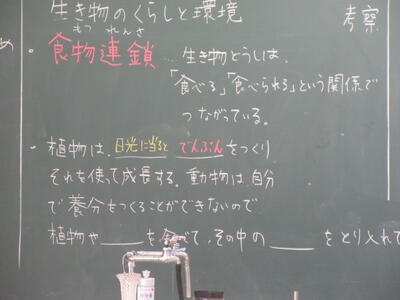 生き物のくらしと環境
考察
もつ れんさ
め
・食物連鎖 … 生き物どうしは、
「食べる」「食べられる」という関係で
つながっている。
・植物は、日光に当ると でんぷんをつくり
それを使って成長する。動物は、自分
で養分をつくることができないので
植物や____を食べて、その中の____をとり入れて